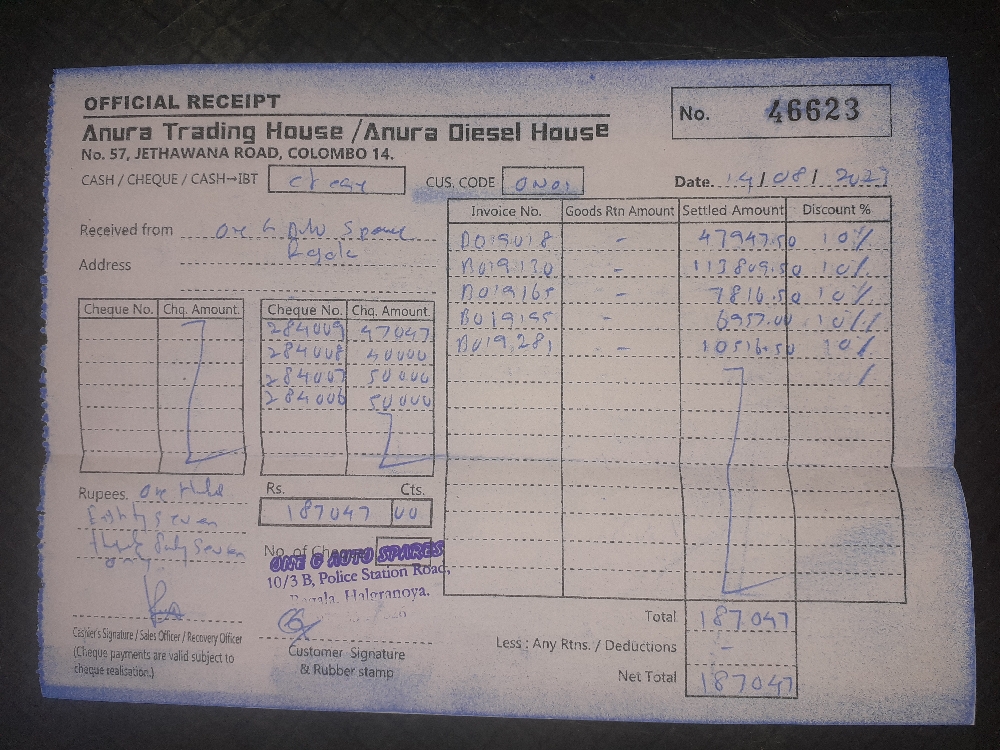 OFFICIAL RECEIPT
No. 46623
Anura Trading House / Anura Diesel House
No. 57, JETHAWANA ROAD, COLOMBO 14.
CASH / CHEQUE / CASH→IBT
CUS. CODE ON01
Date. 14/08/2023
Received from One G Auto Spares
Address Ragala
Invoice No. Goods Rtn Amount Settled Amount Discount %
B019018 - 47947.50 10%
B019130 - 113809.50 10%
B019165 - 7816.50 10%
B019195 - 6957.00 10%
B019281 - 10516.50 10%
Cheque No. Chq. Amount. Cheque No. Chq. Amount.
284009 47047
284008 40000
284007 50000
284006 50000
Rupees. One
Eighty Seven
Forty Seven
only
Rs. Cts.
187047 00
No. of
ONE G AUTO SPARES
10/3 B, Police Station Road,
Ragala, Halgranoya.
Cashier's Signature / Sales Officer / Recovery Officer
(Cheque payments are valid subject to
cheque realisation.)
Customer Signature
& Rubber stamp
Total 187047
Less : Any Rtns. / Deductions -
Net Total 187047